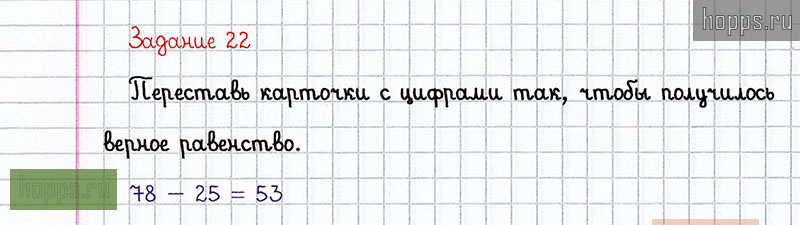 hopps.ru
Задание 22
Переставь карточки с цифрами так, чтобы получилось
верное равенство.
hopps.ru
78 − 25 = 53